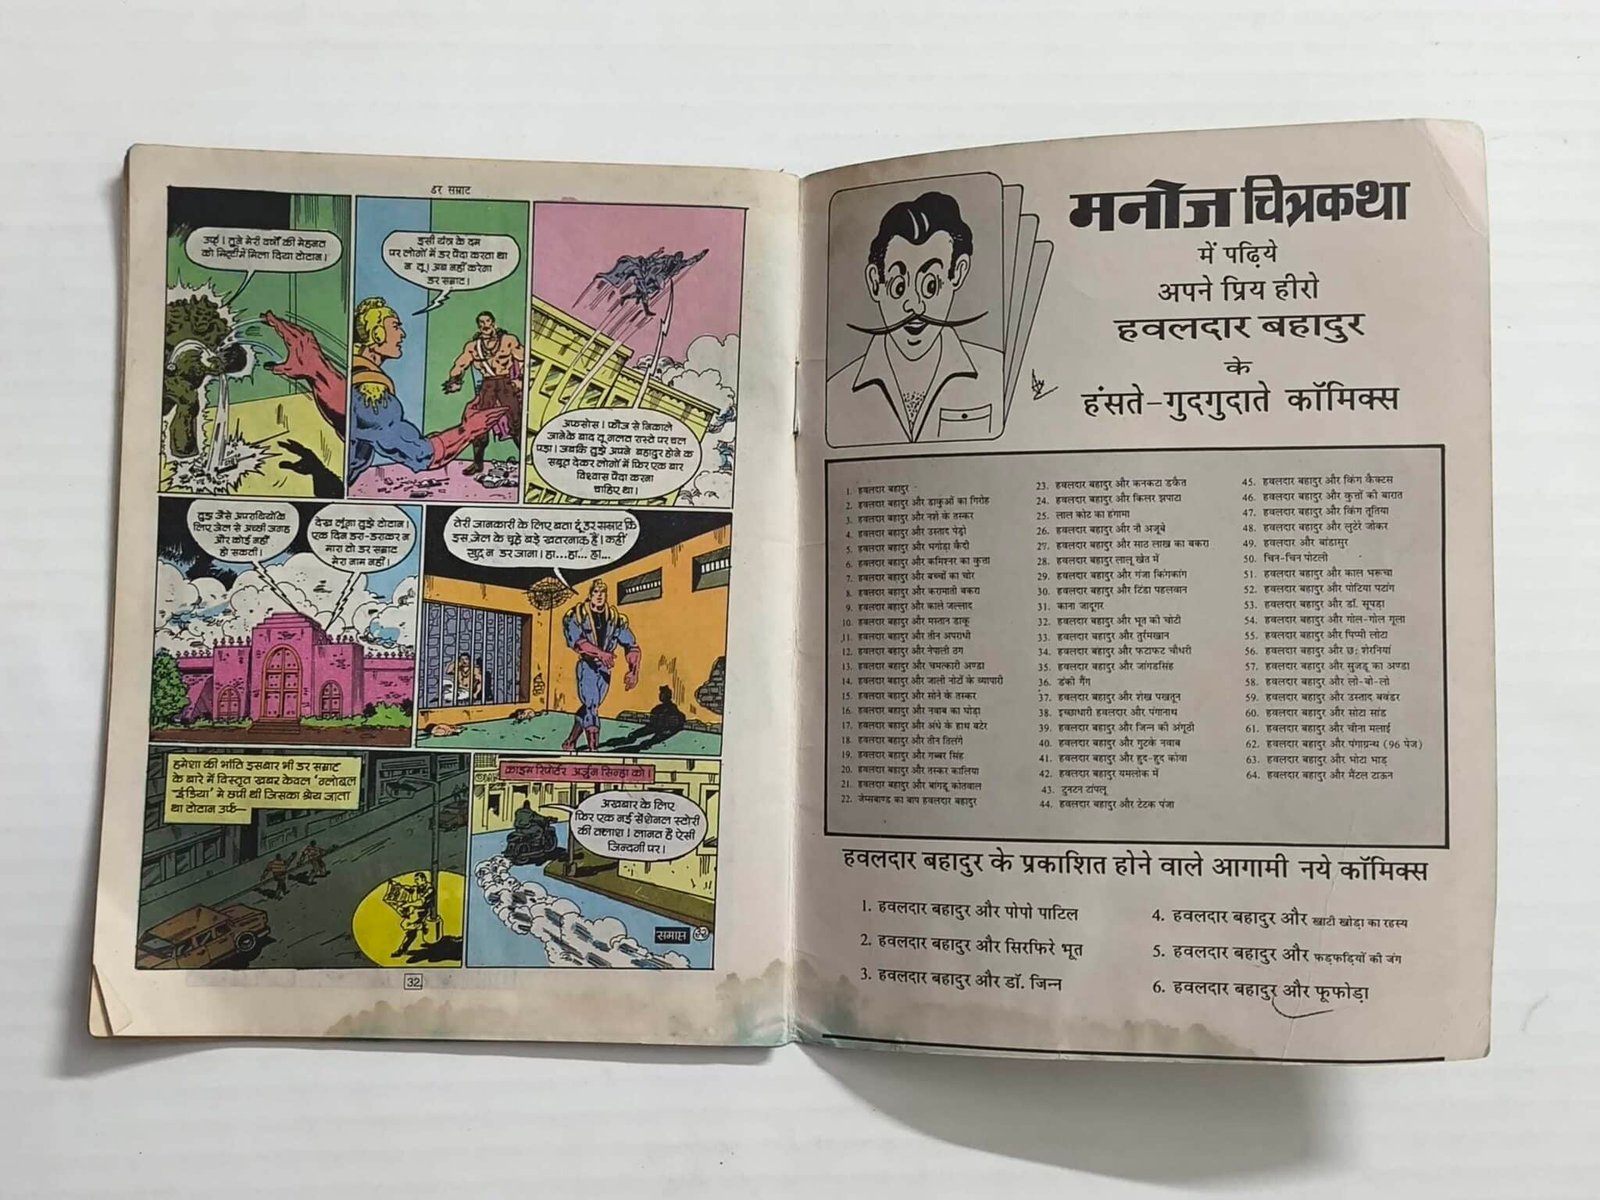 डर सम्राट
उफ्! तूने मेरी वर्षों की मेहनत
को मिट्टी में मिला दिया टोटान।
इसी यंत्र के दम
पर लोगों में डर पैदा करता था
न तू! अब नहीं करेगा
डर सम्राट!
अफसोस! फौज से निकाले
जाने के बाद तू गलत रास्ते पर चल
पड़ा। जबकि तुझे अपने बहादुर होने क
सबूत देकर लोगों में फिर एक बार
विश्वास पैदा करना
चाहिए था।
तुझ जैसे अपराधियों के
लिए जेल से अच्छी जगह
और कोई नहीं
हो सकती।
देख लूंगा तुझे टोटान।
एक दिन डरा-डराकर न
मारा तो डर सम्राट
मेरा नाम नहीं।
तेरी जानकारी के लिए बता दूं डर सम्राट कि
इस जेल के चूहे बड़े खतरनाक हैं। कहीं
सुद न डर जाना। हा...हा... हा...
हमेशा की भांति इसबार भी डर सम्राट
के बारे में विस्तृत खबर केवल 'ग्लोबल
इंडिया' में छपी थी जिसका श्रेय जाता
था टोटान उर्फ—
क्राइम रिपोर्टर अर्जुन सिन्हा को।
अखबार के लिए
फिर एक नई सेंशेनल स्टोरी
की तलाश। लानत है ऐसी
जिन्दगी पर।
समाप्त
32
मनोज चित्रकथा
में पढ़िये
अपने प्रिय हीरो
हवलदार बहादुर
के
हंसते-गुदगुदाते कॉमिक्स
1. हवलदार बहादुर
2. हवलदार बहादुर और डाकुओं का गिरोह
3. हवलदार बहादुर और नशे के तस्कर
4. हवलदार बहादुर और उस्ताद पेड्रो
5. हवलदार बहादुर और भगोड़ा कैदी
6. हवलदार बहादुर और कमिश्नर का कुत्ता
7. हवलदार बहादुर और बच्चों का चोर
8. हवलदार बहादुर और करामाती बकरा
9. हवलदार बहादुर और काले जल्लाद
10. हवलदार बहादुर और मस्तान डाकू
11. हवलदार बहादुर और तीन अपराधी
12. हवलदार बहादुर और नेपाली ठग
13. हवलदार बहादुर और चमत्कारी अण्डा
14. हवलदार बहादुर और जाली नोटों के व्यापारी
15. हवलदार बहादुर और सोने के तस्कर
16. हवलदार बहादुर और नवाब का घोड़ा
17. हवलदार बहादुर और अंधे के हाथ बटेर
18. हवलदार बहादुर और तीन तिलंगे
19. हवलदार बहादुर और गब्बर सिंह
20. हवलदार बहादुर और तस्कर कालिया
21. हवलदार बहादुर और बांगडू कोतवाल
22. जेम्सबाण्ड का बाप हवलदार बहादुर
23. हवलदार बहादुर और कनकटा डकैत
24. हवलदार बहादुर और किलर झपाटा
25. लाल कोट का हंगामा
26. हवलदार बहादुर और नौ अजूबे
27. हवलदार बहादुर और साठ लाख का बकरा
28. हवलदार बहादुर लालू खेत में
29. हवलदार बहादुर और गंजा किंगकांग
30. हवलदार बहादुर और टिंडा पहलवान
31. काना जादूगर
32. हवलदार बहादुर और भूत की चोटी
33. हवलदार बहादुर और तुर्रमखान
34. हवलदार बहादुर और फटाफट चौधरी
35. हवलदार बहादुर और जांगडसिंह
36. डंकी गैंग
37. हवलदार बहादुर और शेख पखतून
38. इच्छाधारी हवलदार और पंगानाथ
39. हवलदार बहादुर और जिन्न की अंगूठी
40. हवलदार बहादुर और गुटके नवाब
41. हवलदार बहादुर और हुद-हुद कौवा
42. हवलदार बहादुर यमलोक में
43. टुनटन टांपलू
44. हवलदार बहादुर और टेटक पंजा
45. हवलदार बहादुर और किंग कैक्टस
46. हवलदार बहादुर और कुत्तों की बारात
47. हवलदार बहादुर और किंग तूतिया
48. हवलदार बहादुर और लुटेरे जोकर
49. हवलदार बहादुर और बांडासुर
50. चिन-चिन पोटली
51. हवलदार बहादुर और काल भरूचा
52. हवलदार बहादुर और पोटिया पटांग
53. हवलदार बहादुर और डॉ. सूपड़ा
54. हवलदार बहादुर और गोल-गोल गूला
55. हवलदार बहादुर और पिप्पी लोटा
56. हवलदार बहादुर और छः शेरनियां
57. हवलदार बहादुर और सुजडू का अण्डा
58. हवलदार बहादुर और लो-बो-लो
59. हवलदार बहादुर और उस्ताद बवंडर
60. हवलदार बहादुर और सोटा सांड
61. हवलदार बहादुर और चीना मलाई
62. हवलदार बहादुर और पंगाग्रन्थ (96 पेज)
63. हवलदार बहादुर और भोटा भाड़
64. हवलदार बहादुर और मैंटल टाऊन
हवलदार बहादुर के प्रकाशित होने वाले आगामी नये कॉमिक्स
1. हवलदार बहादुर और पोपो पाटिल
2. हवलदार बहादुर और सिरफिरे भूत
3. हवलदार बहादुर और डॉ. जिन्न
4. हवलदार बहादुर और खाटी खोड़ा का रहस्य
5. हवलदार बहादुर और फड़फड़ियों की जंग
6. हवलदार बहादुर और फूफोड़ा